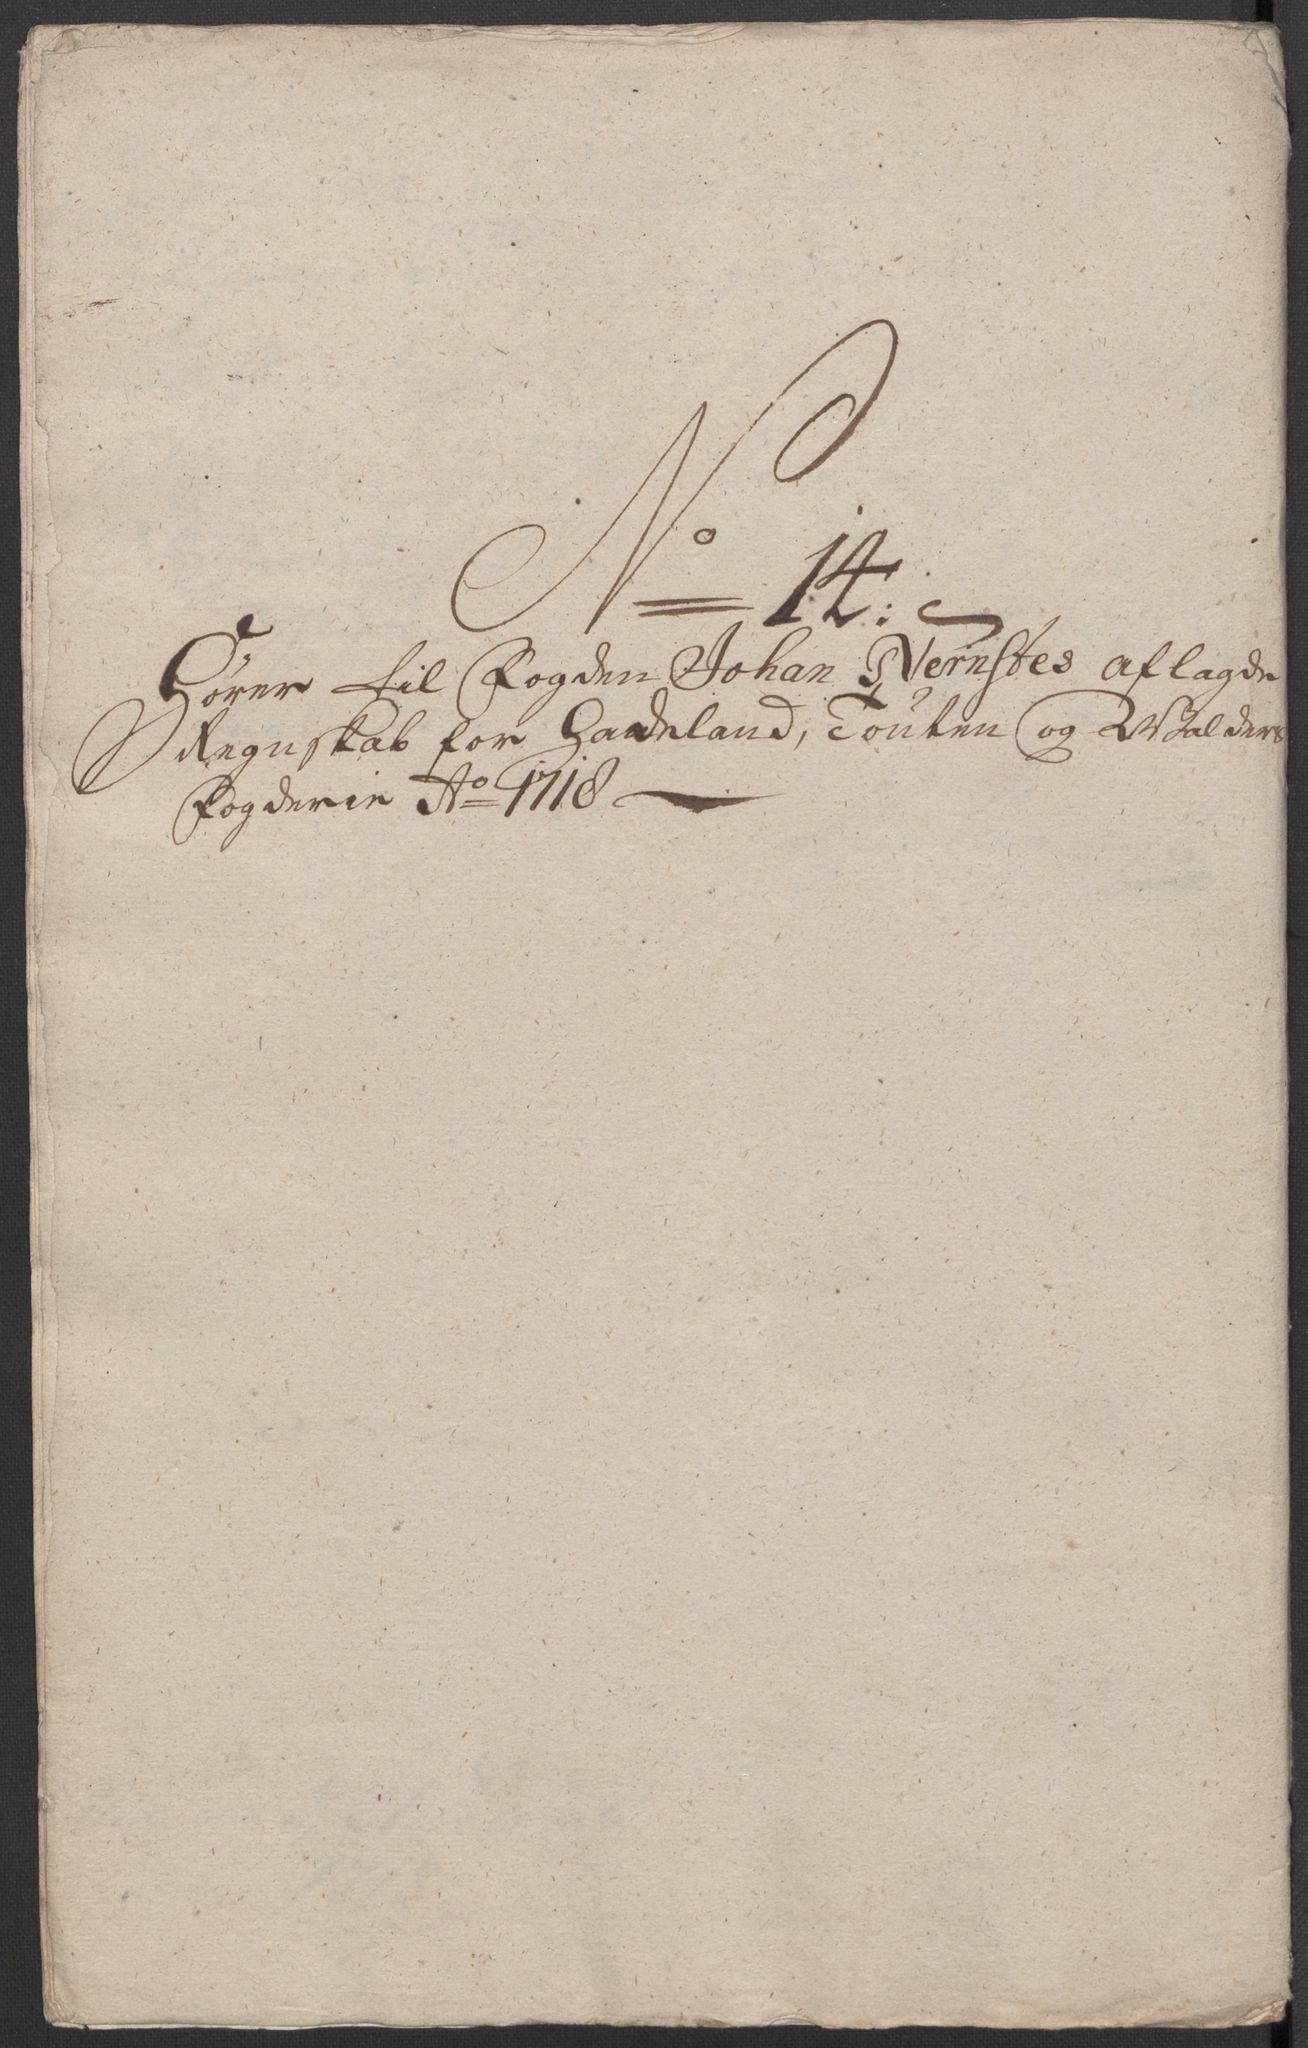 No 14:
Hörer til Fogden Johan Nernstes aflagde
Regnskab for Hadeland, Touten og Walders
Fogderie Ao 1718